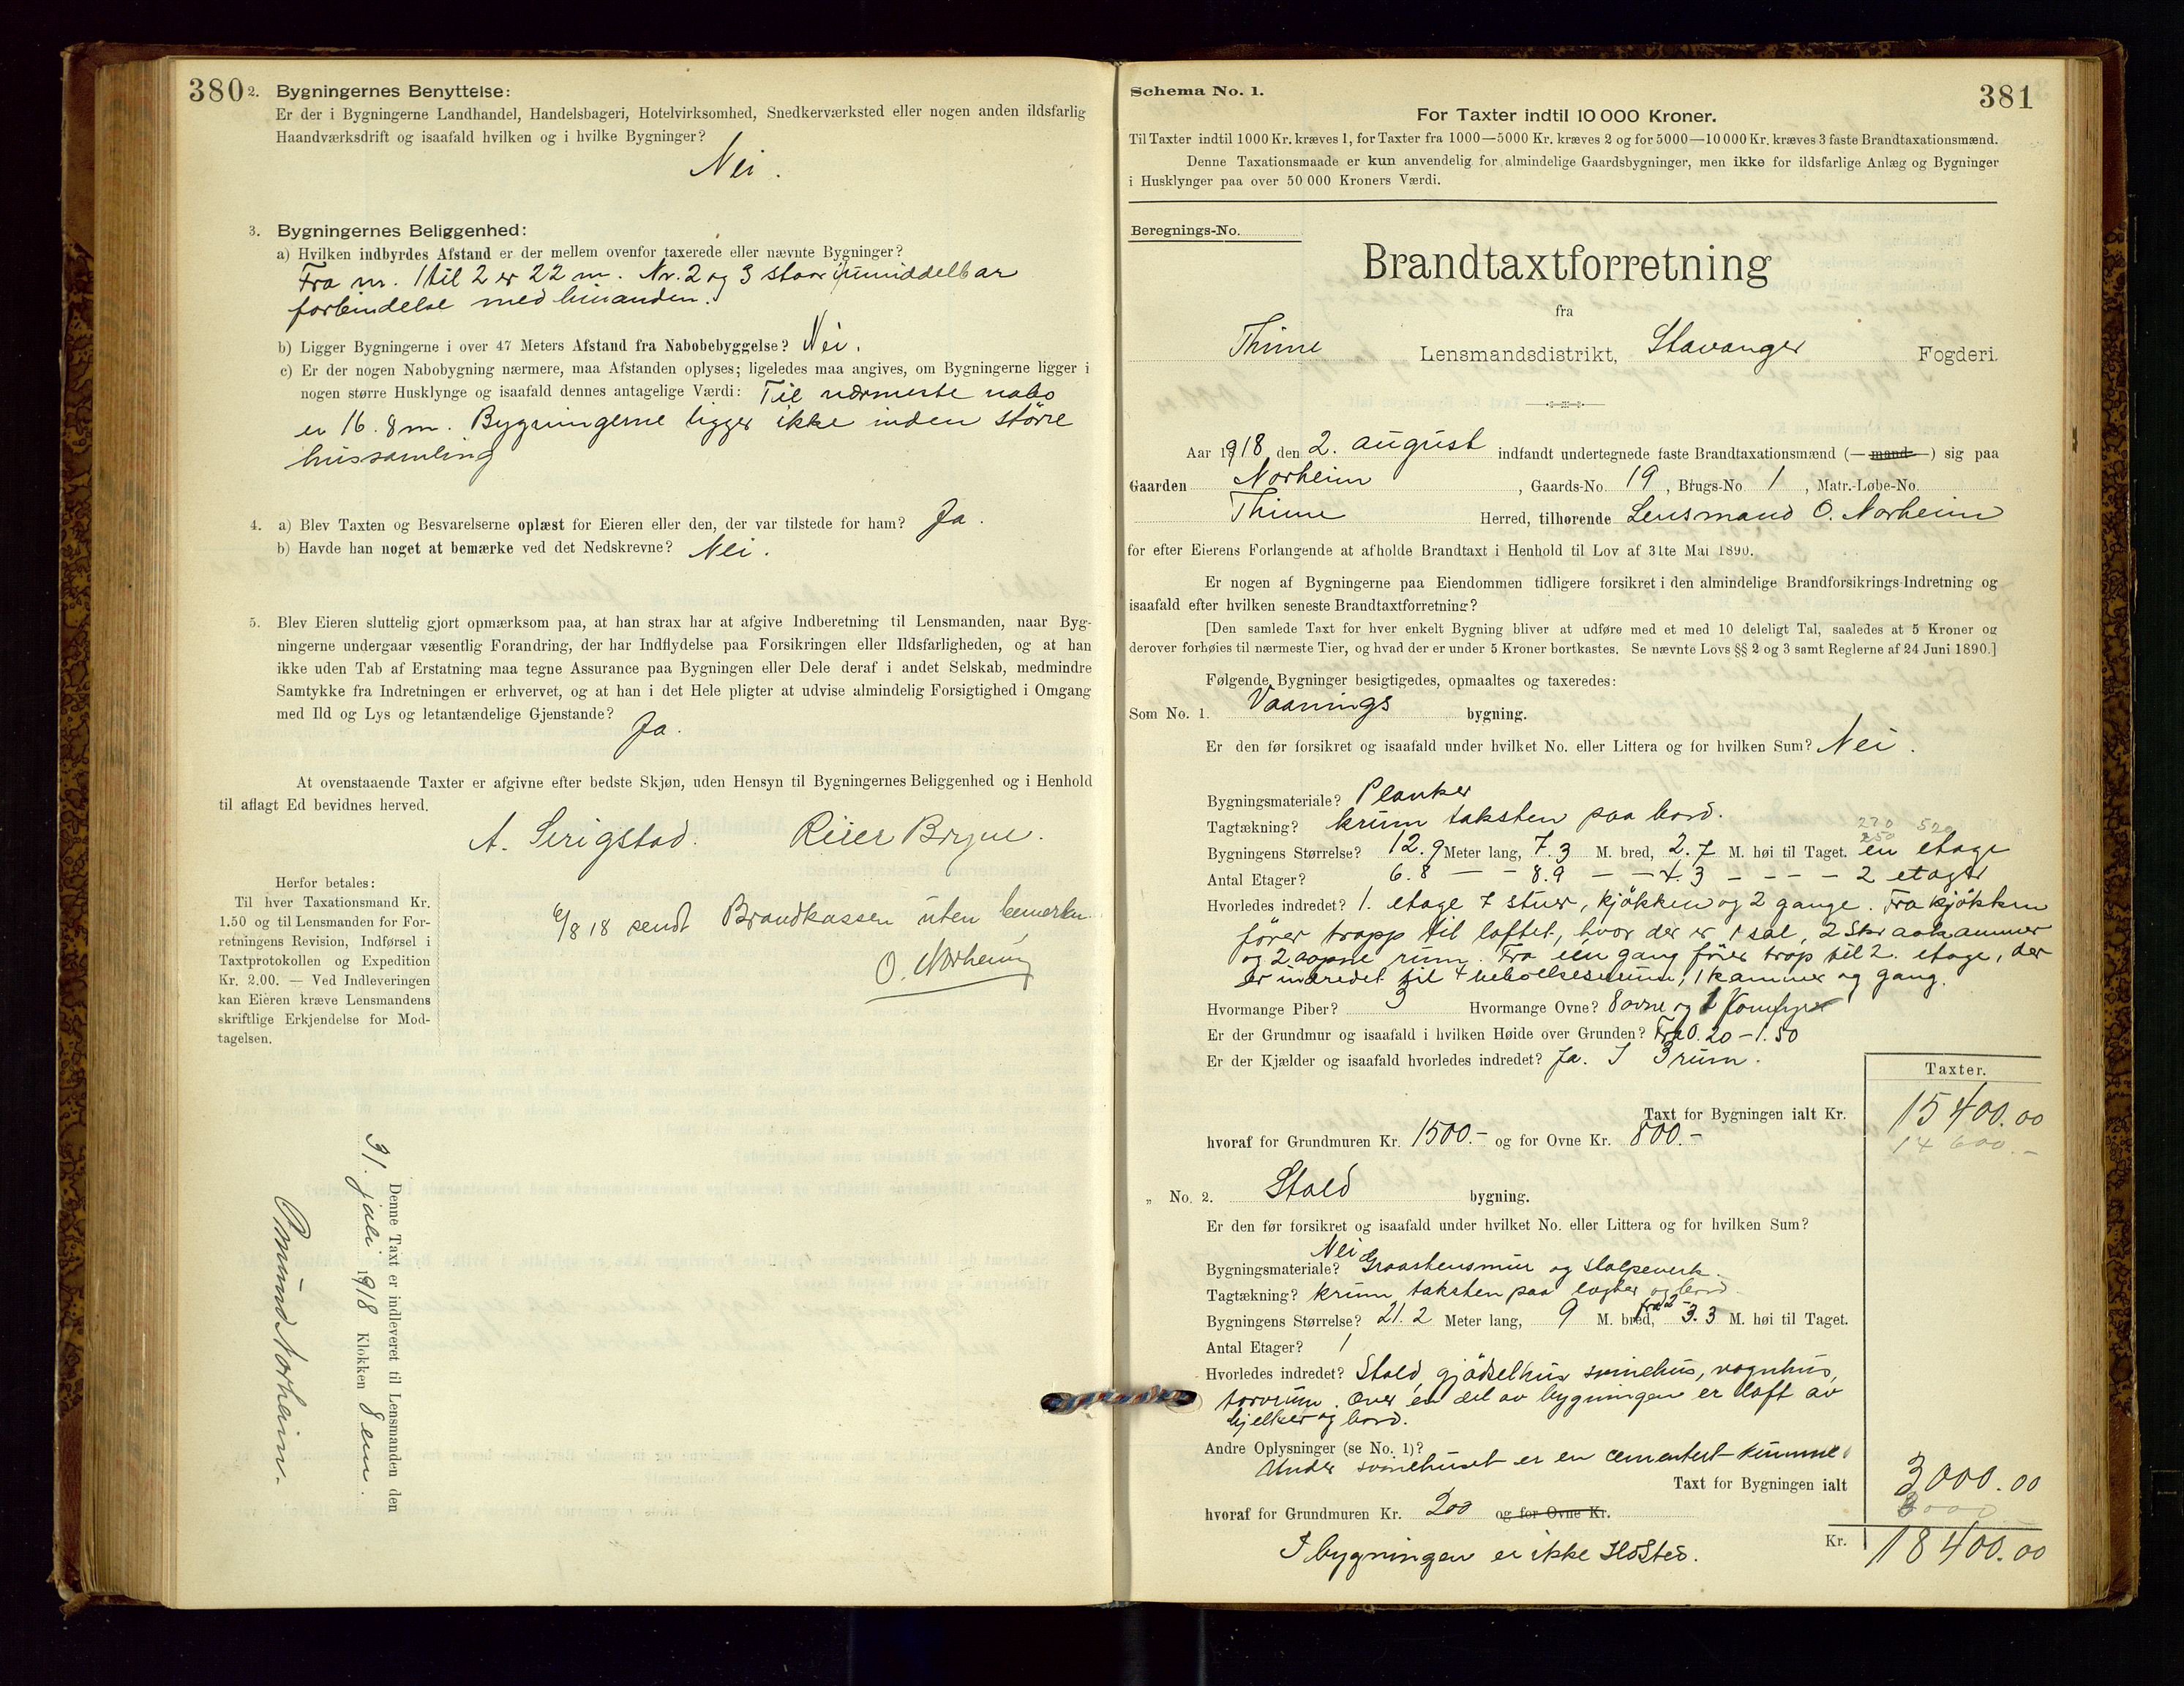 380
2. Bygningernes Benyttelse:
Er der i Bygningerne Landhandel, Handelsbageri, Hotelvirksomhed, Snedkerværksted eller nogen anden ildsfarlig
Haandværksdrift og isaafald hvilken og i hvilke Bygninger?
Nei.
3. Bygningernes Beliggenhed:
a) Hvilken indbyrdes Afstand er der mellem ovenfor taxerede eller nævnte Bygninger?
Fra nr. 1 til 2 er 22 m. Nr. 2 og 3 staar i umiddelbar
forbindelse med hinanden.
b) Ligger Bygningerne i over 47 Meters Afstand fra Nabobebyggelse? Nei.
c) Er der nogen Nabobygning nærmere, maa Afstanden oplyses; ligeledes maa angives, om Bygningerne ligger i
nogen større Husklynge og isaafald dennes antagelige Værdi: Til nærmeste nabo
er 16.8 m. Bygningerne ligger ikke inden större
hussamling
4. a) Blev Taxten og Besvarelserne oplæst for Eieren eller den, der var tilstede for ham? Ja.
b) Havde han noget at bemærke ved det Nedskrevne? Nei.
5. Blev Eieren sluttelig gjort opmærksom paa, at han strax har at afgive Indberetning til Lensmanden, naar Byg-
ningerne undergaar væsentlig Forandring, der har Indflydelse paa Forsikringen eller Ildsfarligheden, og at han
ikke uden Tab af Erstatning maa tegne Assurance paa Bygningen eller Dele deraf i andet Selskab, medmindre
Samtykke fra Indretningen er erhvervet, og at han i det Hele pligter at udvise almindelig Forsigtighed i Omgang
med Ild og Lys og letantændelige Gjenstande?
Ja.
At ovenstaaende Taxter er afgivne efter bedste Skjøn, uden Hensyn til Bygningernes Beliggenhed og i Henhold
til aflagt Ed bevidnes herved.
A. Serigstad. Reier Bryne.
Herfor betales:
Til hver Taxationsmand Kr.
1.50 og til Lensmanden for For-
retningens Revision, Indførsel i
Taxtprotokollen og Expedition
Kr. 2.00. — Ved Indleveringen
kan Eieren kræve Lensmandens
skriftlige Erkjendelse for Mod-
tagelsen.
6/8 18 sendt Brandkassen uten bemerkn.
O. Norheim
Denne Taxt er indleveret til Lensmanden den
31. juli 1918 Klokken 8 em.
Omund Norheim.
Schema No. 1.
381
For Taxter indtil 10 000 Kroner.
Til Taxter indtil 1000 Kr. kræves 1, for Taxter fra 1000—5000 Kr. kræves 2 og for 5000—10 000 Kr. kræves 3 faste Brandtaxationsmænd.
Denne Taxationsmaade er kun anvendelig for almindelige Gaardsbygninger, men ikke for ildsfarlige Anlæg og Bygninger
i Husklynger paa over 50 000 Kroners Værdi.
Beregnings-No.
Brandtaxtforretning
fra
Thime Lensmandsdistrikt, Stavanger Fogderi.
Aar 1918 den 2. august indfandt undertegnede faste Brandtaxationsmænd (— mand —) sig paa
Gaarden Norheim, Gaards-No. 19, Brugs-No. 1, Matr.-Løbe-No.
Thime Herred, tilhørende Lensmand O. Norheim
for efter Eierens Forlangende at afholde Brandtaxt i Henhold til Lov af 31te Mai 1890.
Er nogen af Bygningerne paa Eiendommen tidligere forsikret i den almindelige Brandforsikrings-Indretning og
isaafald efter hvilken seneste Brandtaxtforretning?
[Den samlede Taxt for hver enkelt Bygning bliver at udføre med et med 10 deleligt Tal, saaledes at 5 Kroner og
derover forhøies til nærmeste Tier, og hvad der er under 5 Kroner bortkastes. Se nævnte Lovs §§ 2 og 3 samt Reglerne af 24 Juni 1890.]
Følgende Bygninger besigtigedes, opmaaltes og taxeredes:
Som No. 1. Vaanings bygning.
Er den før forsikret og isaafald under hvilket No. eller Littera og for hvilken Sum? Nei.
Bygningsmateriale? Planker
Tagtækning? krum taksten paa bord.
270 520
Bygningens Størrelse? 12.9 Meter lang, 7.3 M. bred, 2.7 M. høi til Taget. en etage
Antal Etager? 6.8 — — 8.9 — — 4.3 — — — — 2 etager
Hvorledes indredet? 1. etage 7 stuer, kjøkken og 2 gange. Fra kjøkken
fører trapp til loftet, hvor der er 1 sal, 2 Skraakammer
og 2 aapne rum. Fra ein gang fører trap til 2. etage, der
er indredet til 4 beboelsesrum, 1 kammer og gang.
Hvormange Piber? 3 Hvormange Ovne? 8 ovne og 1 Komfyr
Er der Grundmur og isaafald i hvilken Høide over Grunden? Fra 0.20 – 1.50
Er der Kjælder og isaafald hvorledes indredet? Ja. I 3 rum.
Taxter.
Taxt for Bygningen ialt Kr. 15400.00
hvoraf for Grundmuren Kr. 1500.- og for Ovne Kr. 800.- 14600.-
„ No. 2. Stald bygning.
Er den før forsikret og isaafald under hvilket No. eller Littera og for hvilken Sum?
Nei
Bygningsmateriale? Graastensmur og stolpeverk.
Tagtækning? krum taksten paa legter og bord.
Bygningens Størrelse? 21.2 Meter lang, 9 M. bred, fra 2 - 3.3 M. høi til Taget.
Antal Etager? 1
Hvorledes indredet? Stald, gjödselhus svinehus, vognhus,
torvrum. Over en del av bygningen er loft av
bjelker og bord.
Andre Oplysninger (se No. 1)?
Under svinehuset er en cementert kumme
Taxt for Bygningen ialt 3000.00
hvoraf for Grundmuren Kr. 200 og for Ovne Kr.
I bygningen er ikke ildsted. Kr. 18400.00